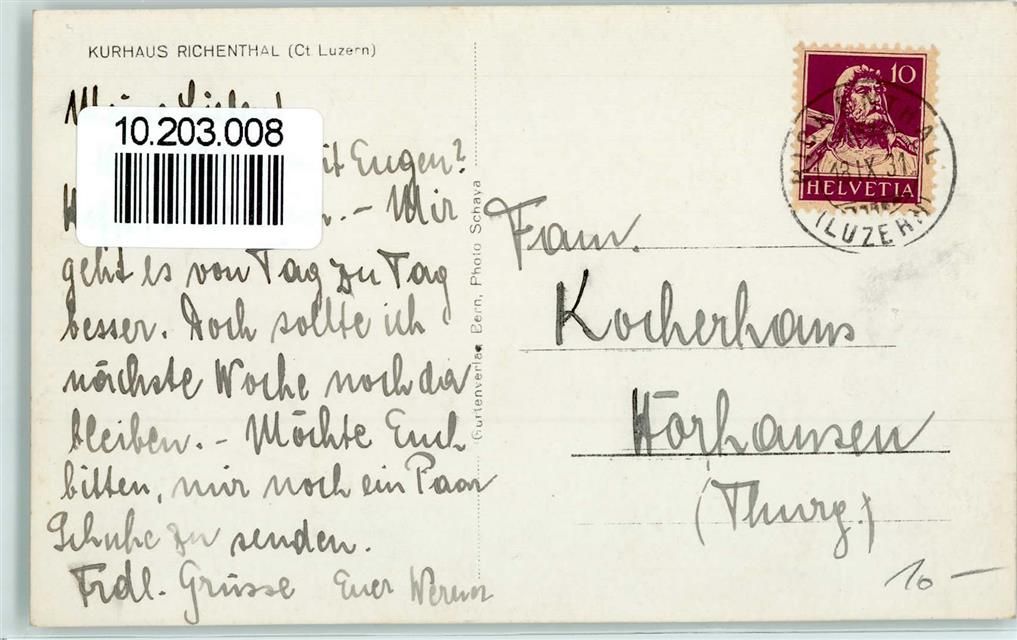 KURHAUS RICHENTHAL (Ct. Luzern)
10.203.008
Eugen?
– Mir
geht es von Tag zu Tag
besser. Doch sollte ich
nächste Woche noch da
bleiben. – Möchte Euch
bitten, mir noch ein Paar
Schuhe zu senden.
Frdl. Grüsse Euer Werner
Gurtenverlag Bern, Photo Schaya
10
HELVETIA
13.IX.31
(LUZERN)
Fam.
Kocherhans
Hörhausen
(Thurg.)
10 –